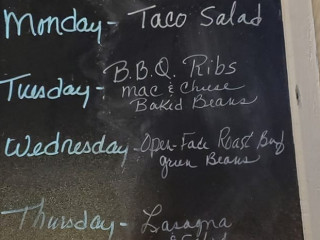 Monday - Taco Salad
Tuesday - B.B.Q. Ribs
mac & Cheese
Baked Beans
Wednesday - Open-Face Roast Beef
green Beans
Thursday - Lasagna